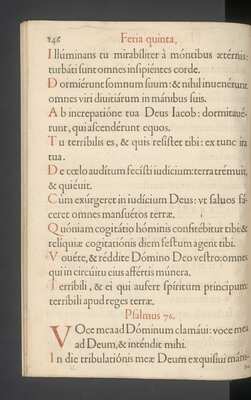 246 Feria quinta,
Illuminans tu mirabíliter à móntibus ætérnis:
turbáti sunt omnes insipiéntes corde.
Dormiérunt somnum suum: & nihil inuenérunt
omnes viri diuitiárum in mánibus suis.
Ab increpatióne tua Deus Iacob: dormitaué-
runt, qui ascendérunt equos.
Tu terríbilis es, & quis resístet tibi: ex tunc ira
tua.
De cœlo audítum fecísti iudícium: terra trémuit,
& quiéuit.
Cùm exúrgeret in iudícium Deus: vt saluos fá-
ceret omnes mansuétos terræ.
Quóniam cogitátio hóminis confitébitur tibi: &
relíquiæ cogitatiónis diem festum agent tibi.
Vouéte, & réddite Dómino Deo vestro: omnes
qui in circúitu eius affértis múnera.
Terríbili, & ei qui aufert spíritum príncipum:
terríbili apud reges terræ.
Psalmus 76.
VOce mea ad Dóminum clamáui: voce mea
ad Deum, & inténdit mihi.
In die tribulatiónis meæ Deum exquisíui